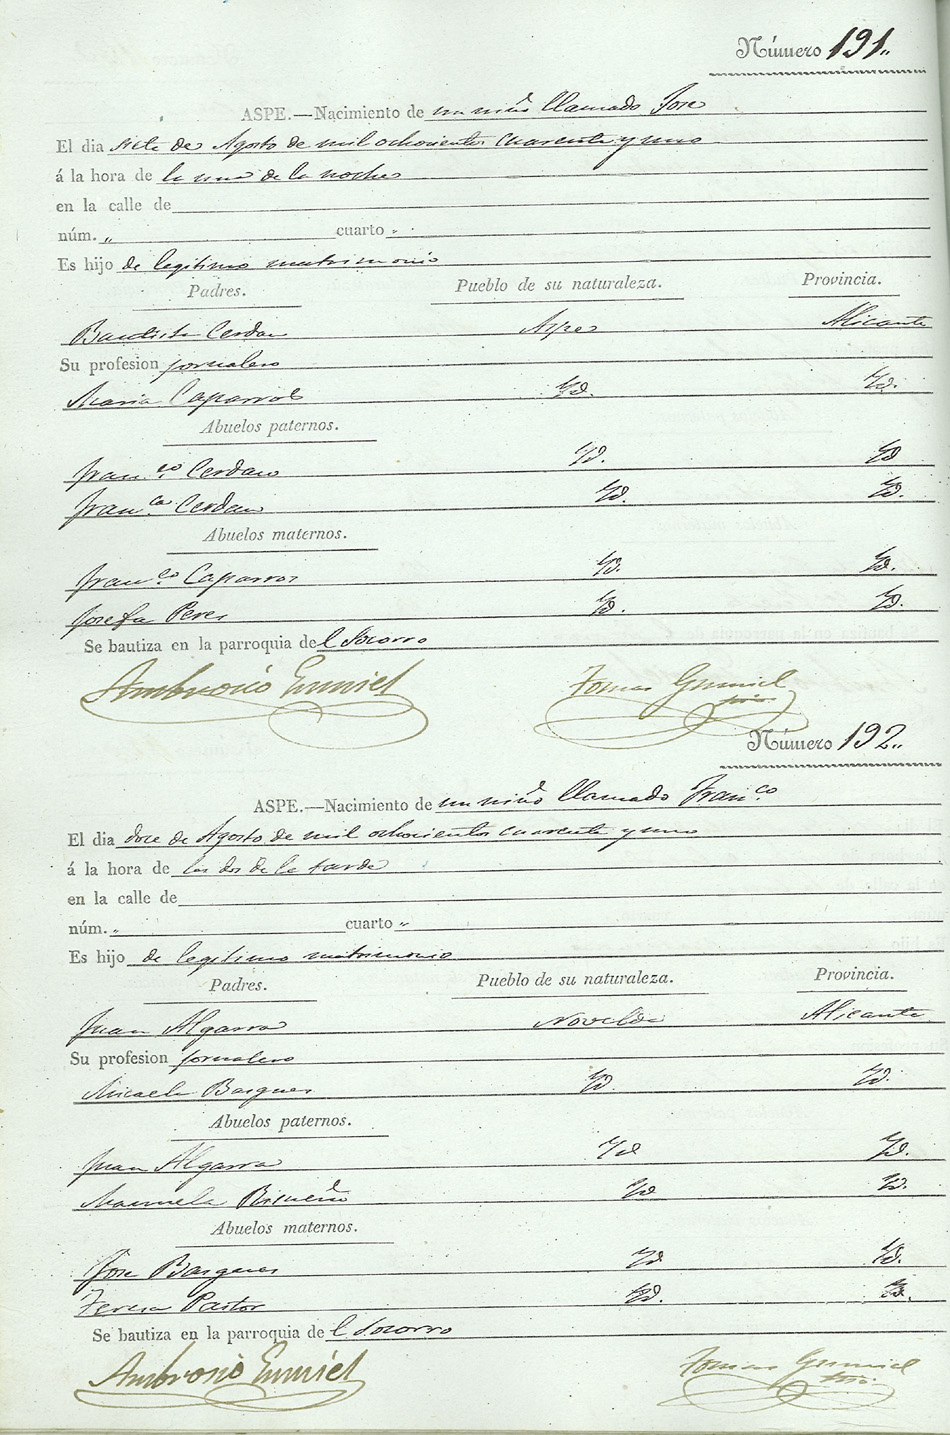 Número 191.
ASPE.—Nacimiento de un niño llamado Jose
El dia siete de Agosto de mil ochocientos cuarenta y uno
á la hora de la una de la noche
en la calle de
núm. „ cuarto „
Es hijo de legitimo matrimonio
Padres. Pueblo de su naturaleza. Provincia.
Bautista Cerdan Aspe Alicante
Su profesion jornalero
Maria Caparros Yd. Yd.
Abuelos paternos.
Fran.co Cerdan Yd. Yd
Fran.ca Cerdan Yd. Yd.
Abuelos maternos.
Fran.co Caparros Yd. Yd.
Josefa Peres Yd. Yd.
Se bautiza en la parroquia del Socorro
Ambrosio Gumiel Tomas Gumiel
Número 192.
ASPE.—Nacimiento de un niño llamado Fran.co
El dia doce de Agosto de mil ochocientos cuarenta y uno
á la hora de las dos de la tarde
en la calle de
núm. „ cuarto „
Es hijo de legitimo matrimonio
Padres. Pueblo de su naturaleza. Provincia.
Juan Algarra Novelda Alicante
Su profesion jornalero
Micaela Basques Yd. Yd.
Abuelos paternos.
Juan Algarra Yd Yd.
Manuela Risueño Yd Yd.
Abuelos maternos.
Jose Basques Yd Yd.
Teresa Pastor Yd. Yd.
Se bautiza en la parroquia del Socorro
Ambrosio Gumiel Tomas Gumiel